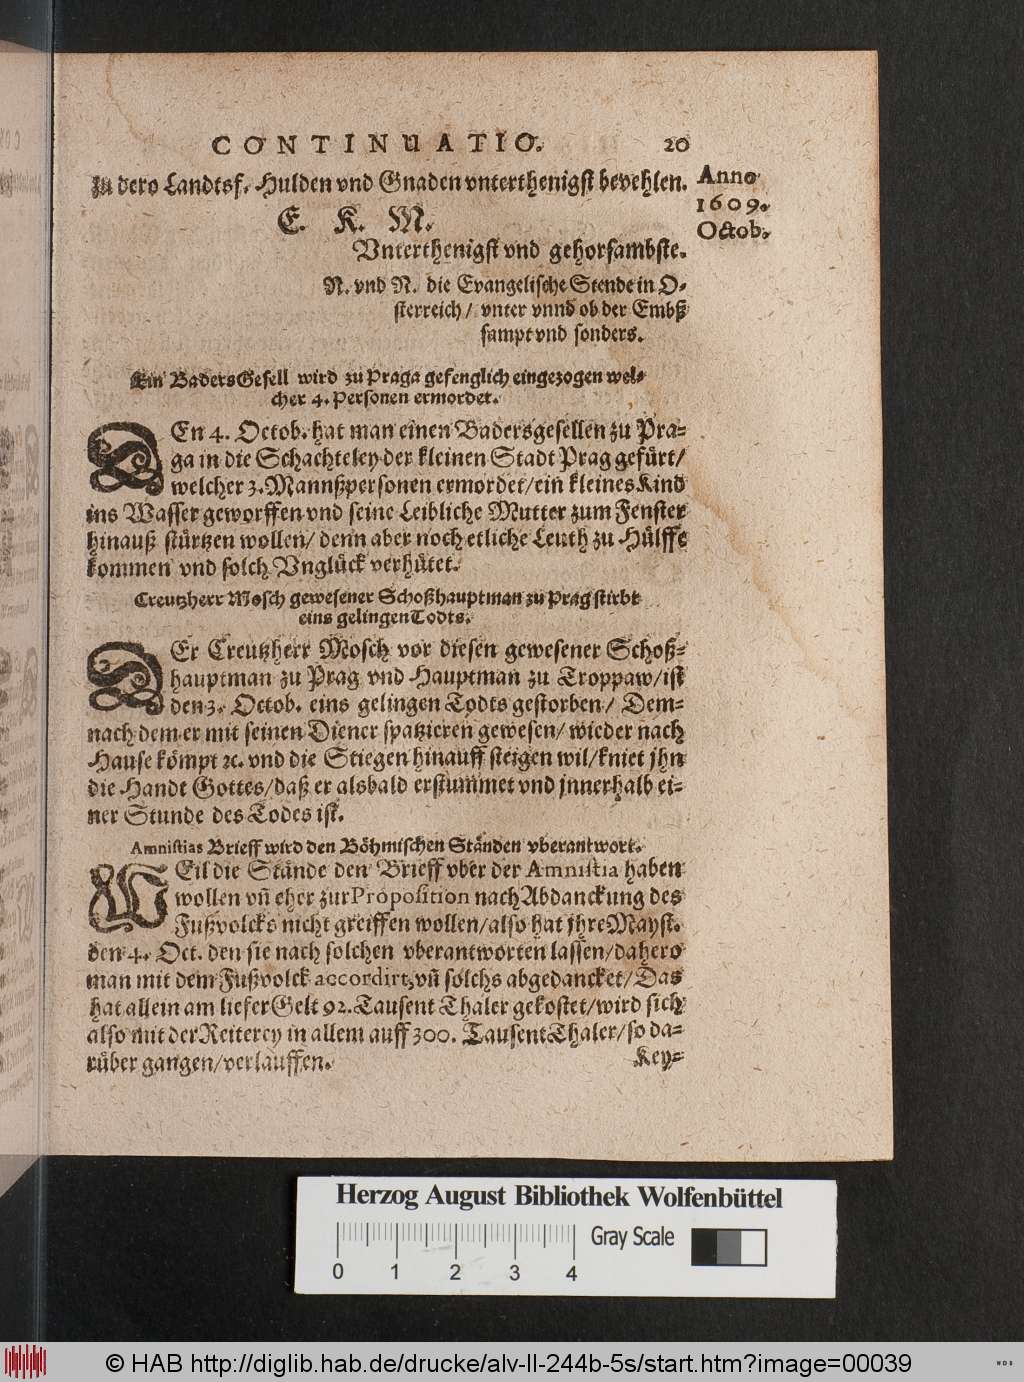 CONTINUATIO. 20
zu dero Landtsf. Hulden vnd Gnaden vnterthenigst bevehlen.
Anno
1609.
Octob.
E. K. M.
Vnterthenigst vnd gehorsambste.
N. vnd N. die Evangelische Stende in O-
sterreich / vnter vnnd ob der Embß
sampt vnd sonders.
Ein Baders Gesell wird zu Praga gefenglich eingezogen wel-
cher 4. Personen ermordet.
DEn 4. Octob. hat man einen Badersgesellen zu Pra-
ga in die Schachteley der kleinen Stadt Prag gefürt/
welcher 3. Mannßpersonen ermordet/ ein kleines Kind
ins Wasser geworffen vnd seine Leibliche Mutter zum Fenster
hinauß stürtzen wollen/ denn aber noch etliche Leuth zu Hülffe
kommen vnd solch Vnglück verhütet.
Creutzherr Mosch gewesener Schoßhauptman zu Prag stirbt
eins gelingen Todts.
DEr Creutzherr Mosch vor diesen gewesener Schoß-
hauptman zu Prag vnd Hauptman zu Troppaw/ ist
den 3. Octob. eins gelingen Todts gestorben/ Dem-
nach dem er mit seinen Diener spatzieren gewesen/ wieder nach
Hause kömpt ꝛc. vnd die Stiegen hinauff steigen wil/ kniet jhn
die Handt Gottes/ daß er alsbald erstummet vnd jnnerhalb ei-
ner Stunde des Todes ist.
Amnistias Brieff wird den Böhmischen Ständen vberantwort.
WEil die Stände den Brieff vber der Amnistia haben
wollen vñ eher zur Proposition nach Abdanckung des
Fußvolcks nicht greiffen wollen/ also hat jhre Mayst.
den 4. Oct. den sie nach solchen vberantworten lassen/ dahero
man mit dem Fußvolck accordirt, vñ solchs abgedancket/ Das
hat allein am liefer Gelt 92. Tausent Thaler gekostet/ wird sich
also mit der Reiterey in allem auff 300. Tausent Thaler/ so da-
rüber gangen/ verlauffen. Key-
Herzog August Bibliothek Wolfenbüttel
Gray Scale
0 1 2 3 4
© HAB http://diglib.hab.de/drucke/alv-ll-244b-5s/start.htm?image=00039